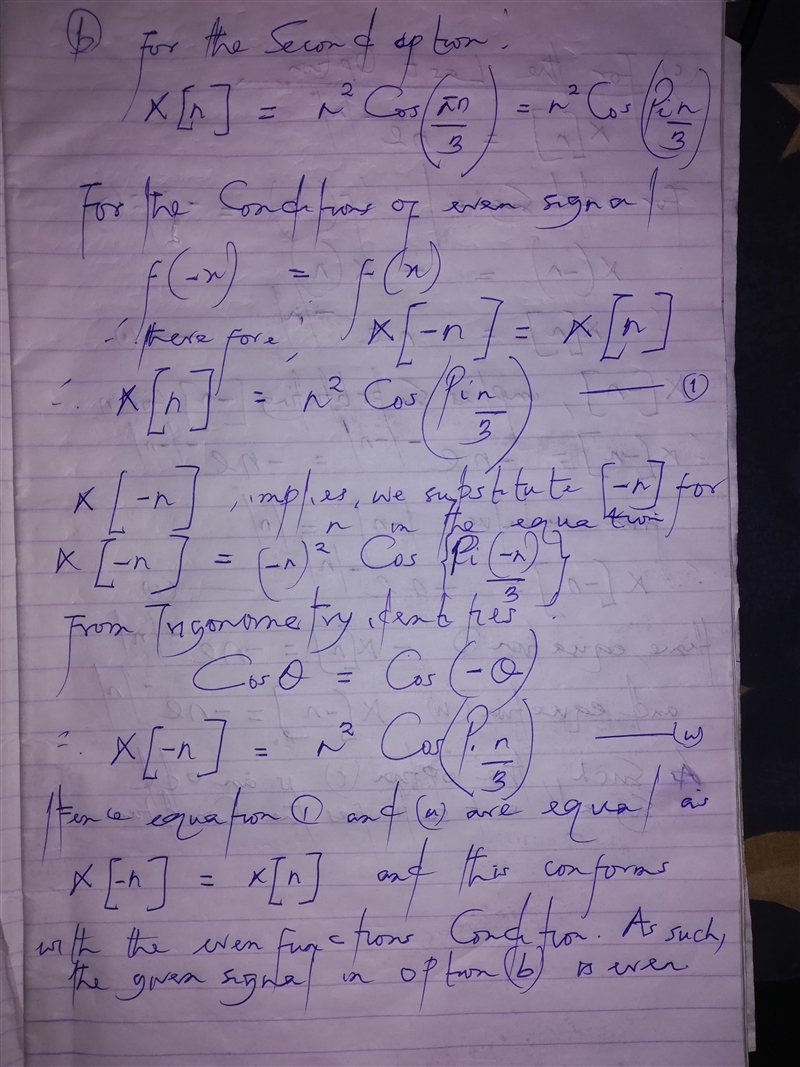 (b) For the Second option:
X[n] = n² Cos(πn/3) = n² Cos(Pi n/3)
For the Conditions of even signal
f(-x) = f(x)
∴ therefore, X[-n] = X[n]
∴ X[n] = n² Cos(Pi n/3) —— (1)
X[-n], implies, we substitute [-n] for
n in the equation
X[-n] = (-n)² Cos{Pi (-n)/3}
From Trigonometry identities:
Cos θ = Cos(-θ)
∴ X[-n] = n² Cos(Pi n/3) —— (ii)
Hence equation (1) and (ii) are equal as
X[-n] = x[n] and this conforms
with the even functions Condition. As such,
the given signal in option (b) is even